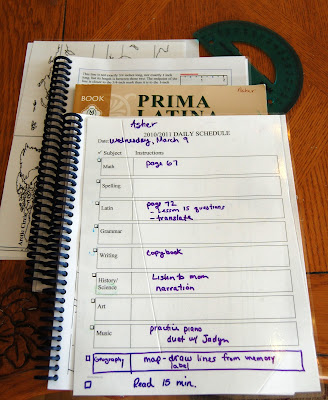 BOOK
PRIMA
LATINA
Asher
Asher
2010/2011 DAILY SCHEDULE
Date: Wednesday, March 9
✓ Subject Instructions
Math page 67
Spelling
Latin page 72
- Lesson 15 questions
- translate
Grammar
Writing copybook
History/ Listen to mom
Science narration
Art
Music practice piano
duet w/ Jadyn
Geography map - draw lines from memory
label
Read 15 min.